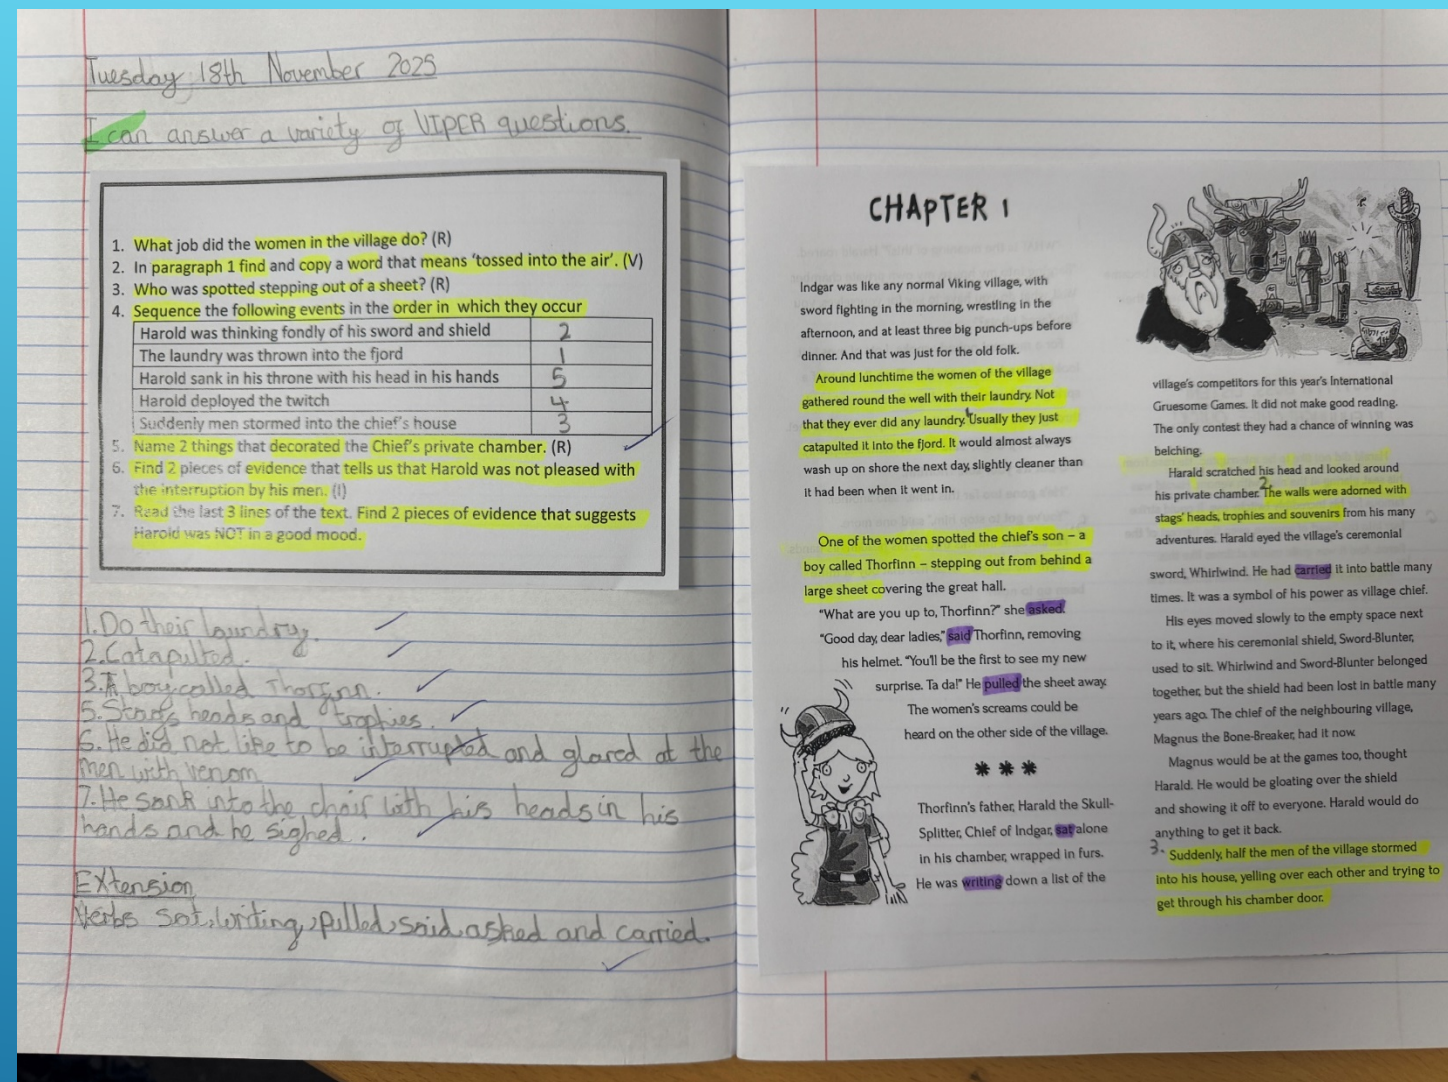 Tuesday 18th November 2025
I can answer a variety of VIPER questions.
1. What job did the women in the village do? (R)
2. In paragraph 1 find and copy a word that means 'tossed into the air'. (V)
3. Who was spotted stepping out of a sheet? (R)
4. Sequence the following events in the order in which they occur
Harold was thinking fondly of his sword and shield 2
The laundry was thrown into the fjord 1
Harold sank in his throne with his head in his hands 5
Harold deployed the twitch 4
Suddenly men stormed into the chief's house 3
5. Name 2 things that decorated the Chief's private chamber. (R)
6. Find 2 pieces of evidence that tells us that Harold was not pleased with
the interruption by his men. (I)
7. Read the last 3 lines of the text. Find 2 pieces of evidence that suggests
Harold was NOT in a good mood.
1. Do their laundry.
2. Catapulted.
3. A boy called Thorfinn.
5. Stags heads and trophies.
6. He did not like to be interrupted and glared at the
men with venom
7. He sank into the chair with his heads in his
hands and he sighed.
Extension
Verbs sat, writing, pulled, said, asked and carried.
CHAPTER 1
Indgar was like any normal Viking village, with
sword fighting in the morning, wrestling in the
afternoon, and at least three big punch-ups before
dinner. And that was just for the old folk.
Around lunchtime the women of the village
gathered round the well with their laundry. Not
that they ever did any laundry. Usually they just
catapulted it into the fjord. It would almost always
wash up on shore the next day, slightly cleaner than
it had been when it went in.
One of the women spotted the chief's son – a
boy called Thorfinn – stepping out from behind a
large sheet covering the great hall.
"What are you up to, Thorfinn?" she asked.
"Good day, dear ladies," said Thorfinn, removing
his helmet. "You'll be the first to see my new
surprise. Ta da!" He pulled the sheet away.
The women's screams could be
heard on the other side of the village.
***
Thorfinn's father, Harald the Skull-
Splitter, Chief of Indgar, sat alone
in his chamber, wrapped in furs.
He was writing down a list of the
village's competitors for this year's International
Gruesome Games. It did not make good reading.
The only contest they had a chance of winning was
belching.
Harald scratched his head and looked around
2.
his private chamber. The walls were adorned with
stags' heads, trophies and souvenirs from his many
adventures. Harald eyed the village's ceremonial
sword, Whirlwind. He had carried it into battle many
times. It was a symbol of his power as village chief.
His eyes moved slowly to the empty space next
to it, where his ceremonial shield, Sword-Blunter,
used to sit. Whirlwind and Sword-Blunter belonged
together, but the shield had been lost in battle many
years ago. The chief of the neighbouring village,
Magnus the Bone-Breaker, had it now.
Magnus would be at the games too, thought
Harald. He would be gloating over the shield
and showing it off to everyone. Harald would do
anything to get it back.
3. Suddenly, half the men of the village stormed
into his house, yelling over each other and trying to
get through his chamber door.